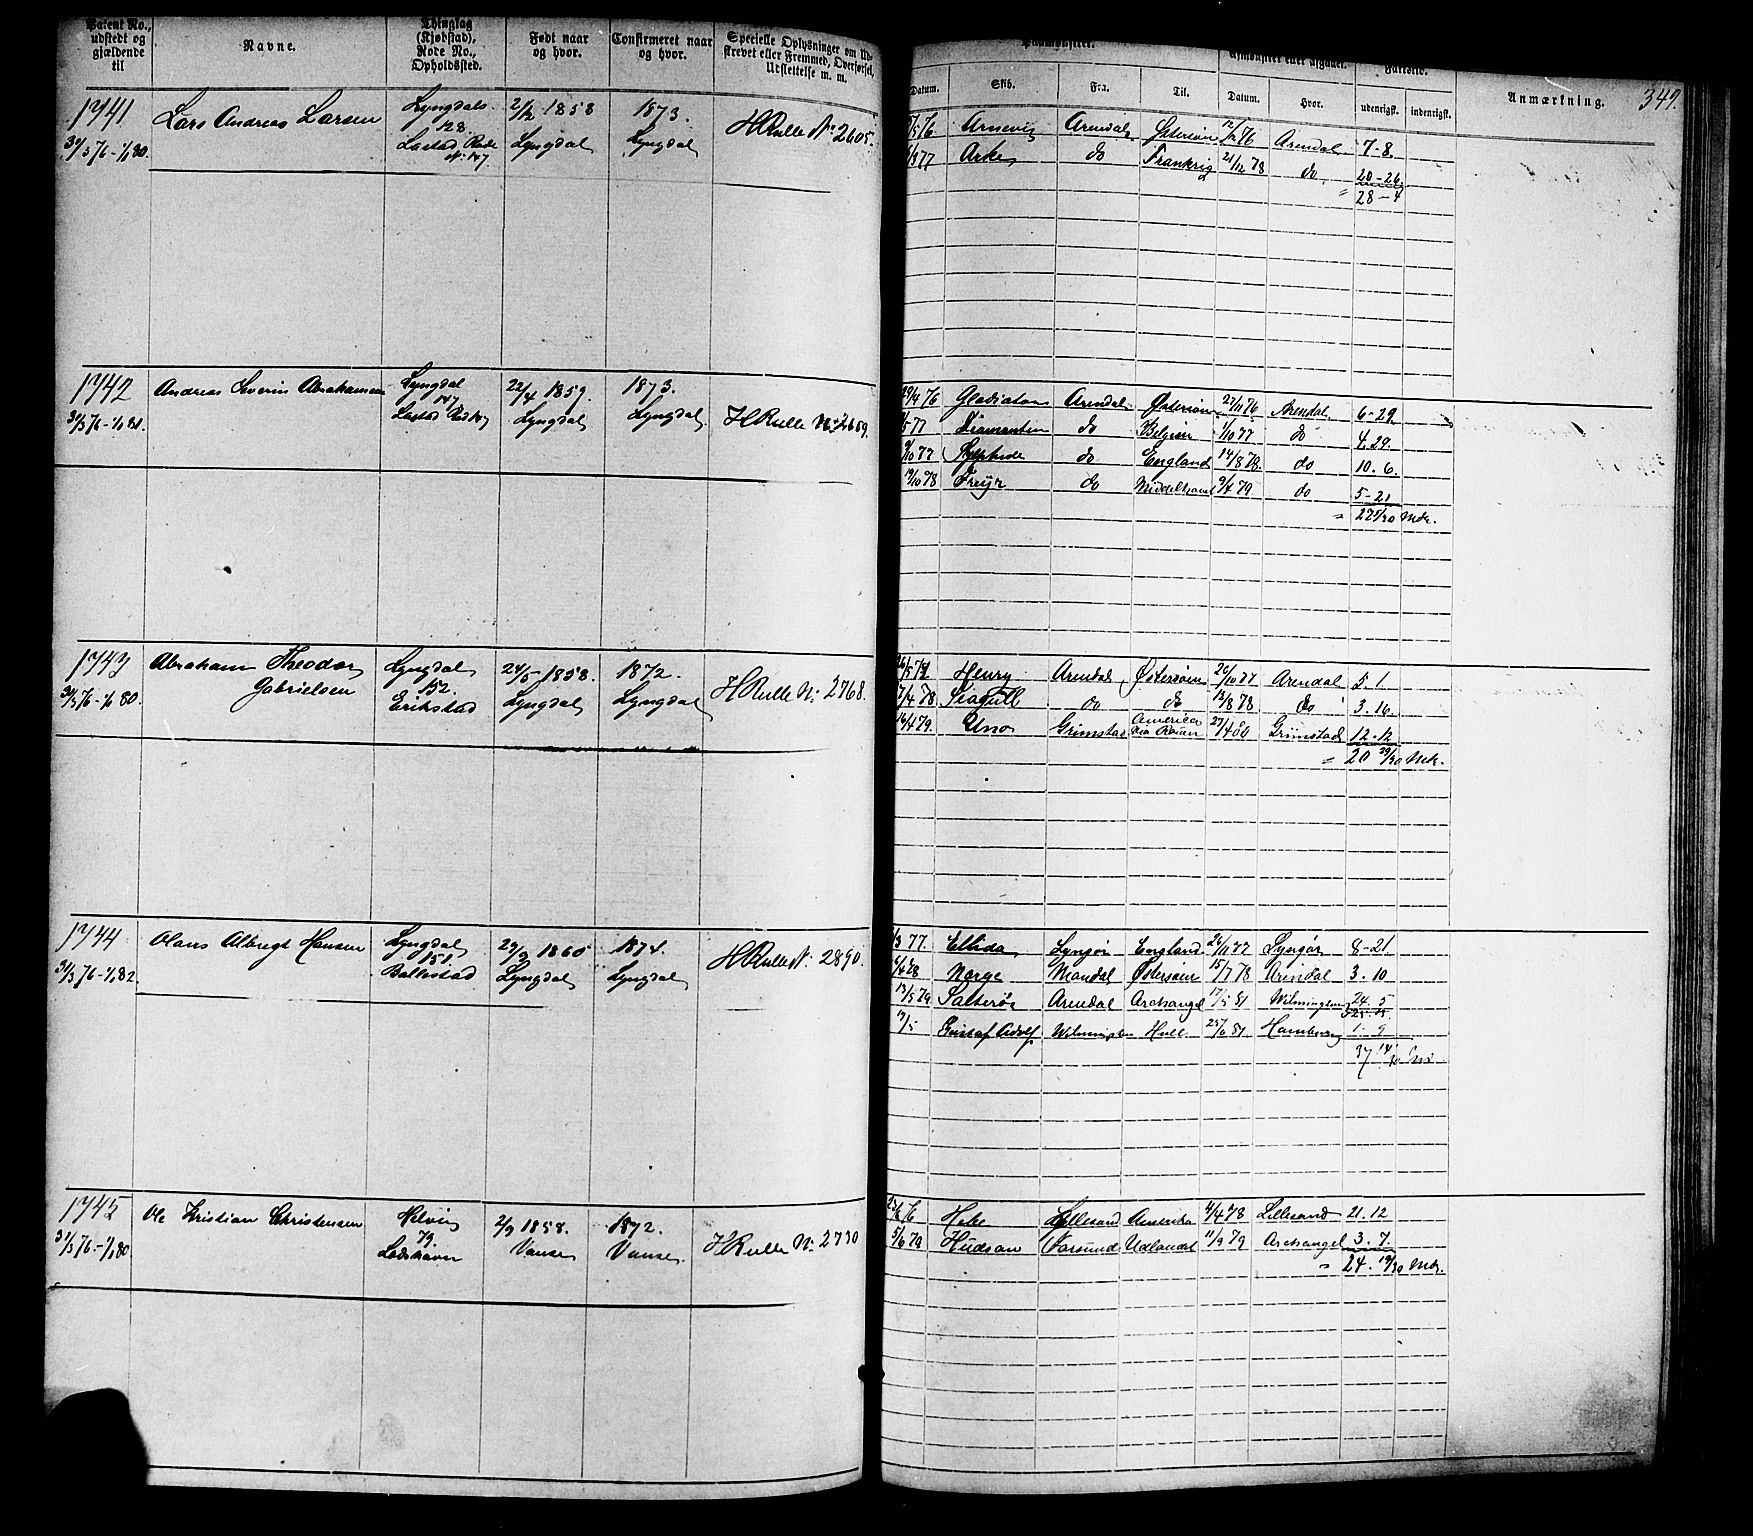 Patent No., udstedt og gjældende til
Navne.
Thinglag (Kjøbstad), Rode No., Opholdssted.
Født naar og hvor.
Confirmeret naar og hvor.
Specielle Oplysninger om Udskrevet eller Fremmed, Overførsel, Udslettelse m. m.
Datum.
Skib.
Fra.
Til.
Datum.
Hvor.
udenrigsk.
indenrigsk.
Anmærkning.
349.
1741
31/3 76 - 1/1 80.
Lars Andreas Larsen
Lyngdals
128
Lastad Rode
No 147
2/12 1858
Lyngdal
1873.
Lyngdal
H Rulle No 2605.
/5 76 Arnevig Arendal Østersøen 12/12 76 Arendal 7-8.
/8 77 Arke do Frankrig 21/12 78 do 20-26
" 28-4
1742
31/3 76 - 1/1 81.
Andreas Severin Abrahamsen
Lyngdal
147
Lastad
22/4 1859.
Lyngdal
1873.
Lyngdal
H Rulle No 2659.
29/4 76 Gladiator Arendal Østersøen 27/11 76 Arendal 6-29.
/5 77 Diamanten do Belgien 1/10 77 do 4.29.
/10 77 Sylphide do England 14/8 78. do 10.6.
19/10 78 Freyr do Middelhavet 9/4 79 do 5-21
" 27 25/30 Mdr.
1743
31/3 76 - 1/1 80.
Abraham Theodor
Gabrielsen
Lyngdal
152.
Erikstad
24/5 1858.
Lyngdal
1872.
Lyngdal
H Rulle No 2768.
26/5 77 Henry Arendal Østersøen 26/10 77 Arendal 5.1.
7/4 78 Seagull do do 12/8 78 do 3.16.
16/4 79. Uno Grimstad America via Rouen 27/4 80 Grimstad 12-12
" 20 29/30 Mdr.
1744
31/3 76 - 1/1 82.
Olaus Albregt Hansen
Lyngdal
151.
Ballestad
29/2 1860
Lyngdal
1874.
Lyngdal
H Rulle No 2890.
/3 77. Ellida Lyngør England 26/11 77 Lyngør 8-21.
/6 78 Norge Mandal Østersøen 15/7 78 Arendal 3.10
13/5 79 Salterø Arendal Archangel 17/5 81 Wilmington 24.5
19/5 Gustaf Adolf Wilmington Hull 25/6 81 Hamborg 1.9
37 14/30 Mdr
1745
31/3 76 - 1/1 80
Ole Kristian Christensen
Helvig
79.
Loshavn
2/9 1858.
Vanse
1872.
Vanse
H Rulle No 2730
23/6 76 Hebe Lillesand Amerika 4/4 78 Lillesand 21.12
5/6 79 Hudson Farsund Udlandet 11/9 79 Archangel 3.7.
" 24. 19/30 Mdr.